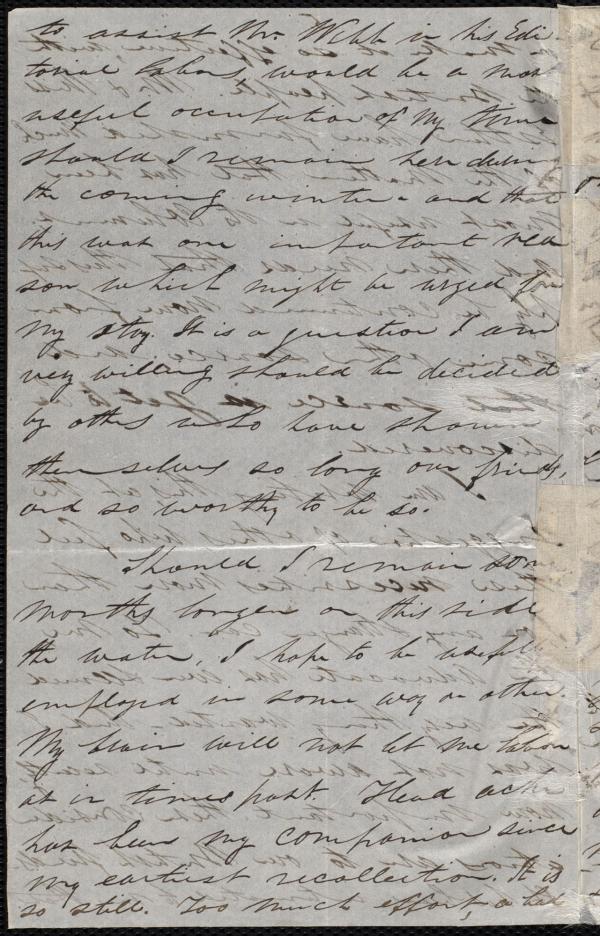 to assist Mr. Webb in his Edi-
torial labors, would be a most
useful occupation of my time
should I remain here during
the coming winter - and that
this was one important rea
son which might be urged for
my stay. It is a question I am
very willing should be decided
by others who have shown
themselves so long our friends,
and so worthy to be so.
Should I remain some
months longer on this side
the water, I hope to be usefully
employed in some way or other.
My brain will not let me labor
as in times past. Head ache
has been my companion since
my earliest recollection. It is
so still. Too much effort, a